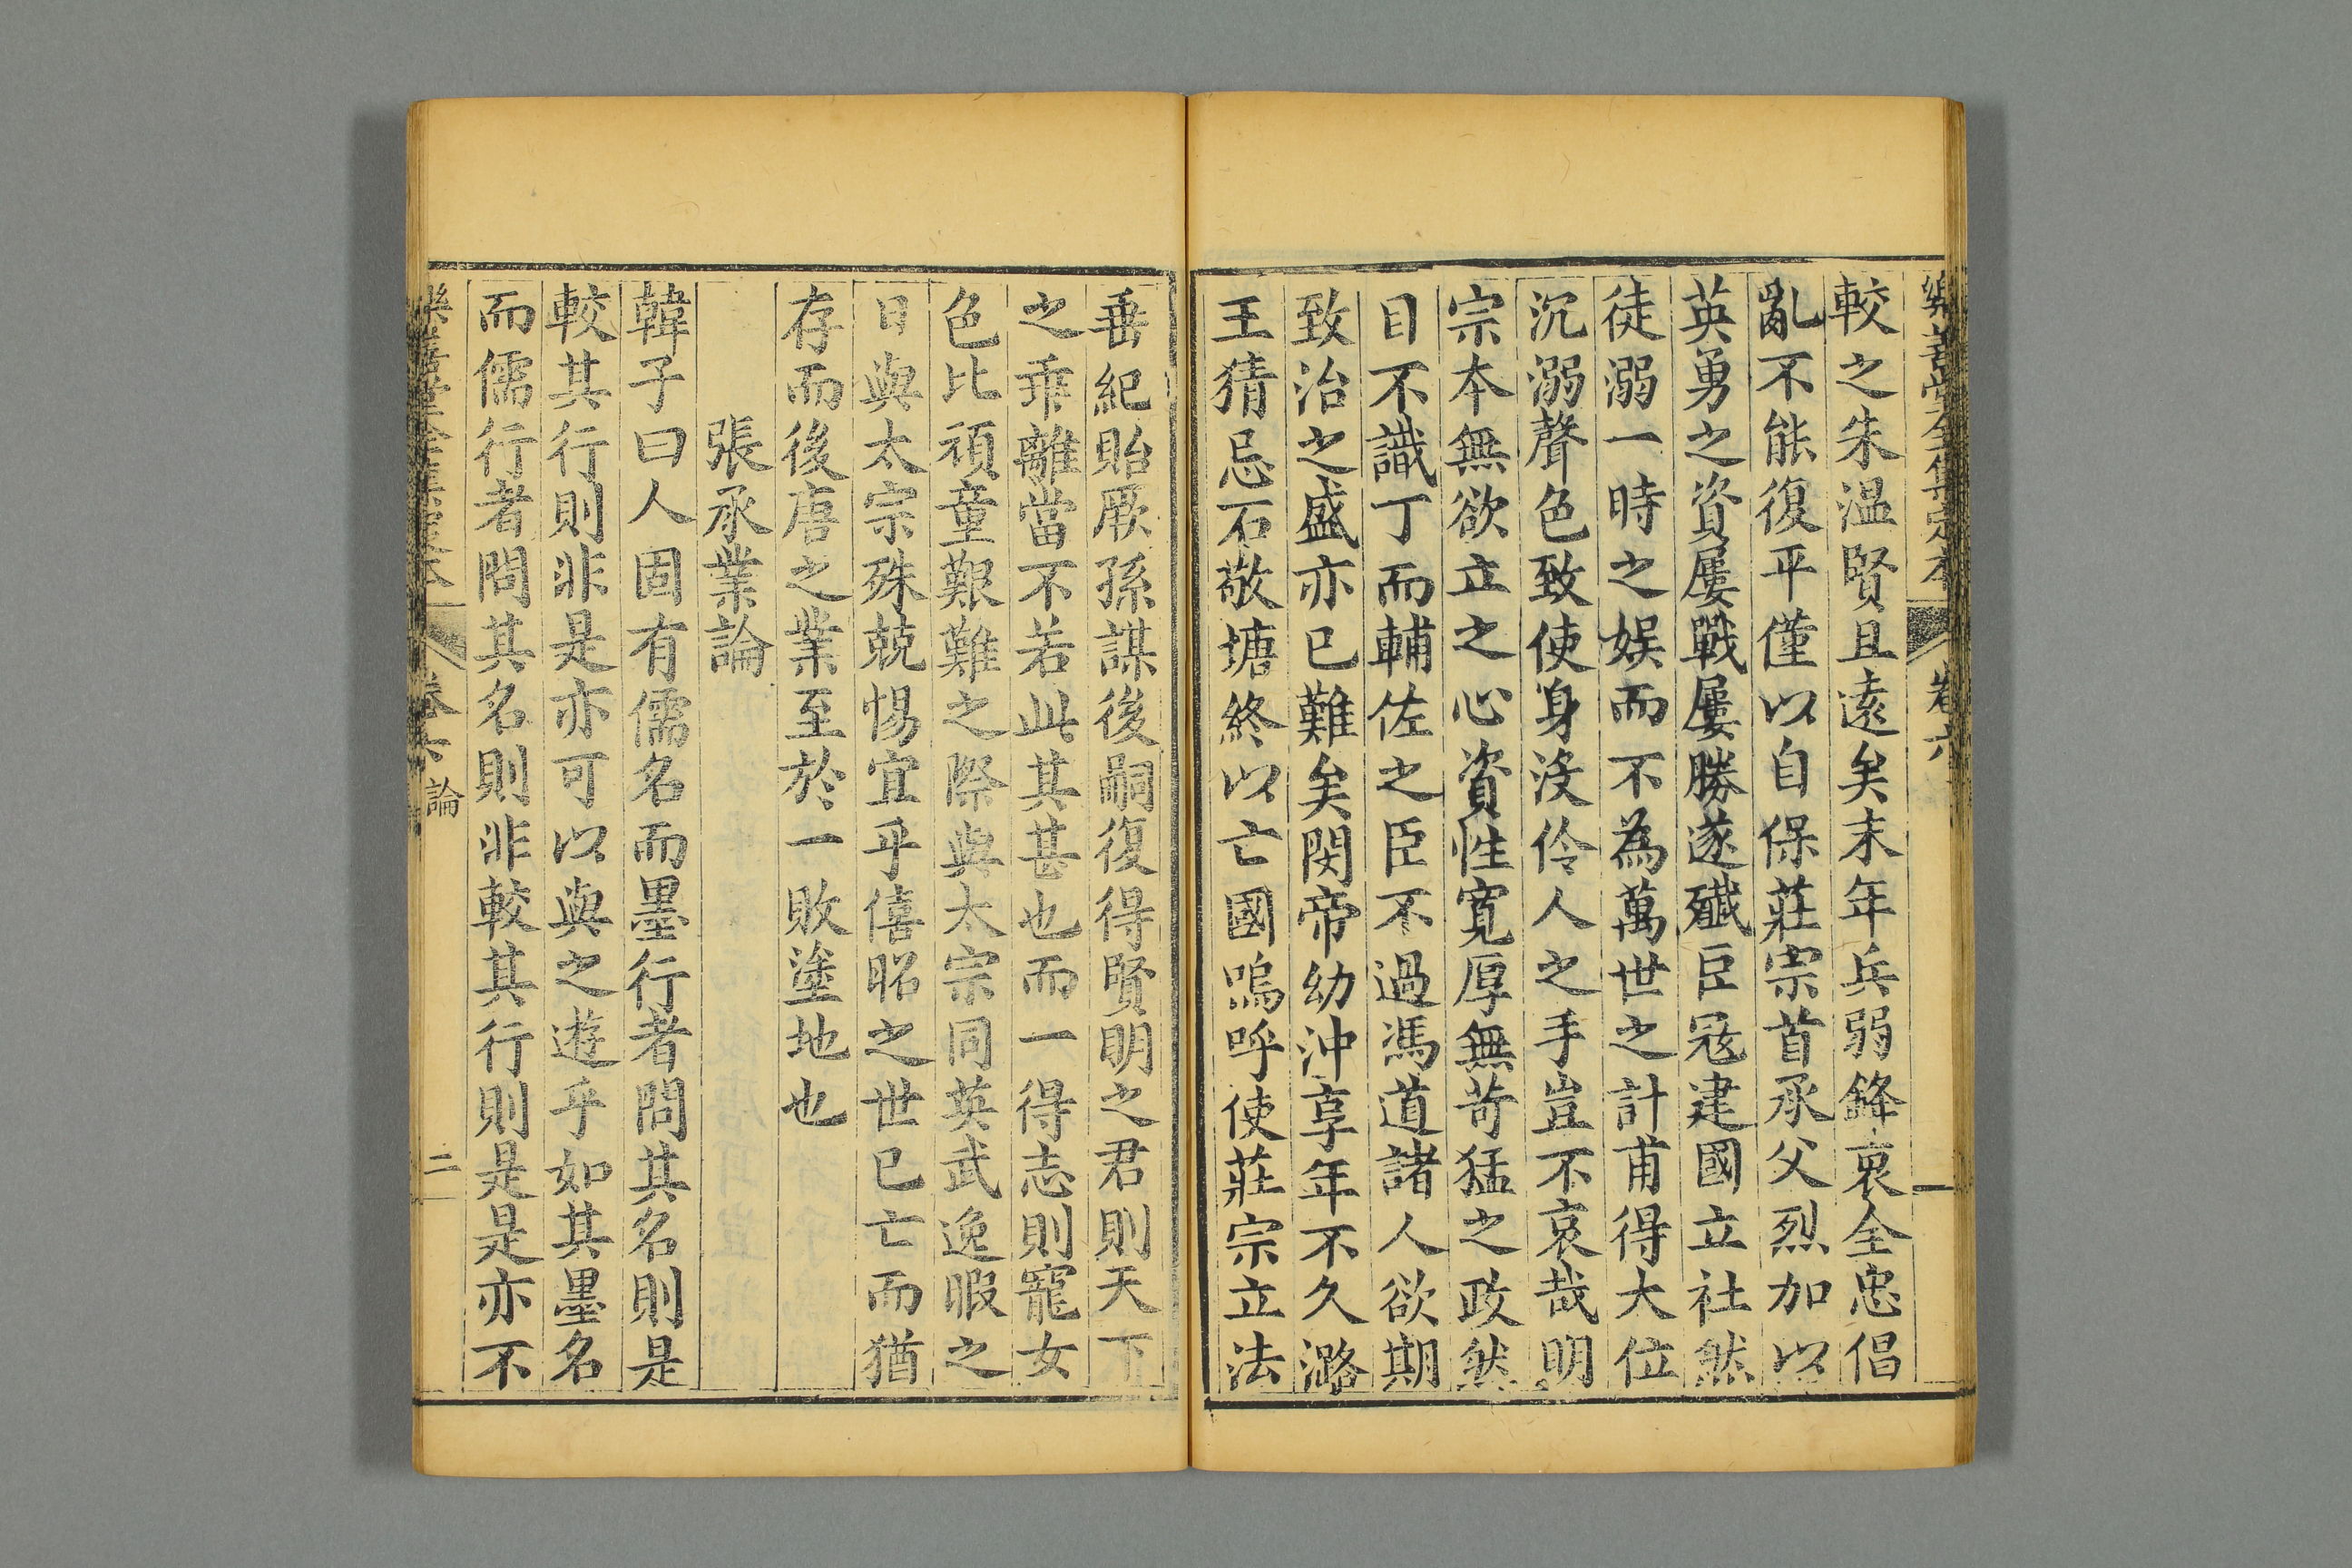 樂善堂全集定本 卷六
較之朱温賢且遠矣末年兵弱鋒衰全忠倡
亂不能復平僅以自保莊宗首承父烈加以
英勇之資屢戰屢勝遂殱臣冦建國立社然
徒溺一時之娱而不為萬世之計甫得大位
沉溺聲色致使身没伶人之手豈不哀哉明
宗本無欲立之心資性寛厚無苛猛之政然
目不識丁而輔佐之臣不過馮道諸人欲期
致治之盛亦已難矣閔帝幼沖享年不久潞
王猜忌石敬塘終以亡國嗚呼使莊宗立法
垂紀貽厥孫謀後嗣復得賢明之君則天下
之乖離當不若此其甚也而一得志則寵女
色比頑童艱難之際與太宗同英武逸暇之
日與太宗殊兢惕宜乎僖昭之世已亡而猶
存而後唐之業至於一敗塗地也
張承業論
韓子曰人固有儒名而墨行者問其名則是
較其行則非是亦可以與之遊乎如其墨名
而儒行者問其名則非較其行則是是亦不
樂善堂全集定本 卷六 論 二